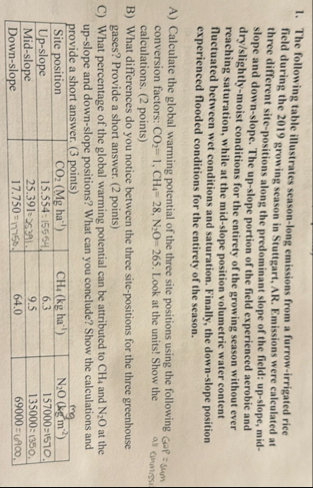 1. The following table illustrates season-long emissions from a furrow-irrigated rice
field during the 2019 growing season in Stuttgart, AR. Emissions were calculated at
three different site-positions along the predominant slope of the field: up-slope, mid-
slope and down-slope. The up-slope portion of the field experienced aerobic and
dry/slightly-moist conditions for the entirety of the growing season without ever
reaching saturation, while at the mid-slope position volumetric water content
fluctuated between wet conditions and saturation. Finally, the down-slope position
experienced flooded conditions for the entirety of the season.
A) Calculate the global warming potential of the three site positions using the following
conversion factors: CO₂= 1, CH₄= 28, N₂O= 265. Look at the units! Show the
calculations. (2 points)
GWP = sum
B) What differences do you notice between the three site-positions for the three greenhouse
gases? Provide a short answer. (2 points)
C) What percentage of the global warming potential can be attributed to CH₄ and N₂O at the
up-slope and down-slope positions? What can you conclude? Show the calculations and
provide a short answer. (3 points)
Site position CO₂ (Mg ha⁻¹) CH₄ (kg ha⁻¹) N₂O (kg m⁻²) mg
Up-slope 15.554 6.3 157000
Mid-slope 25.391 9.5 135000
Down-slope 17.750 64.0 69000